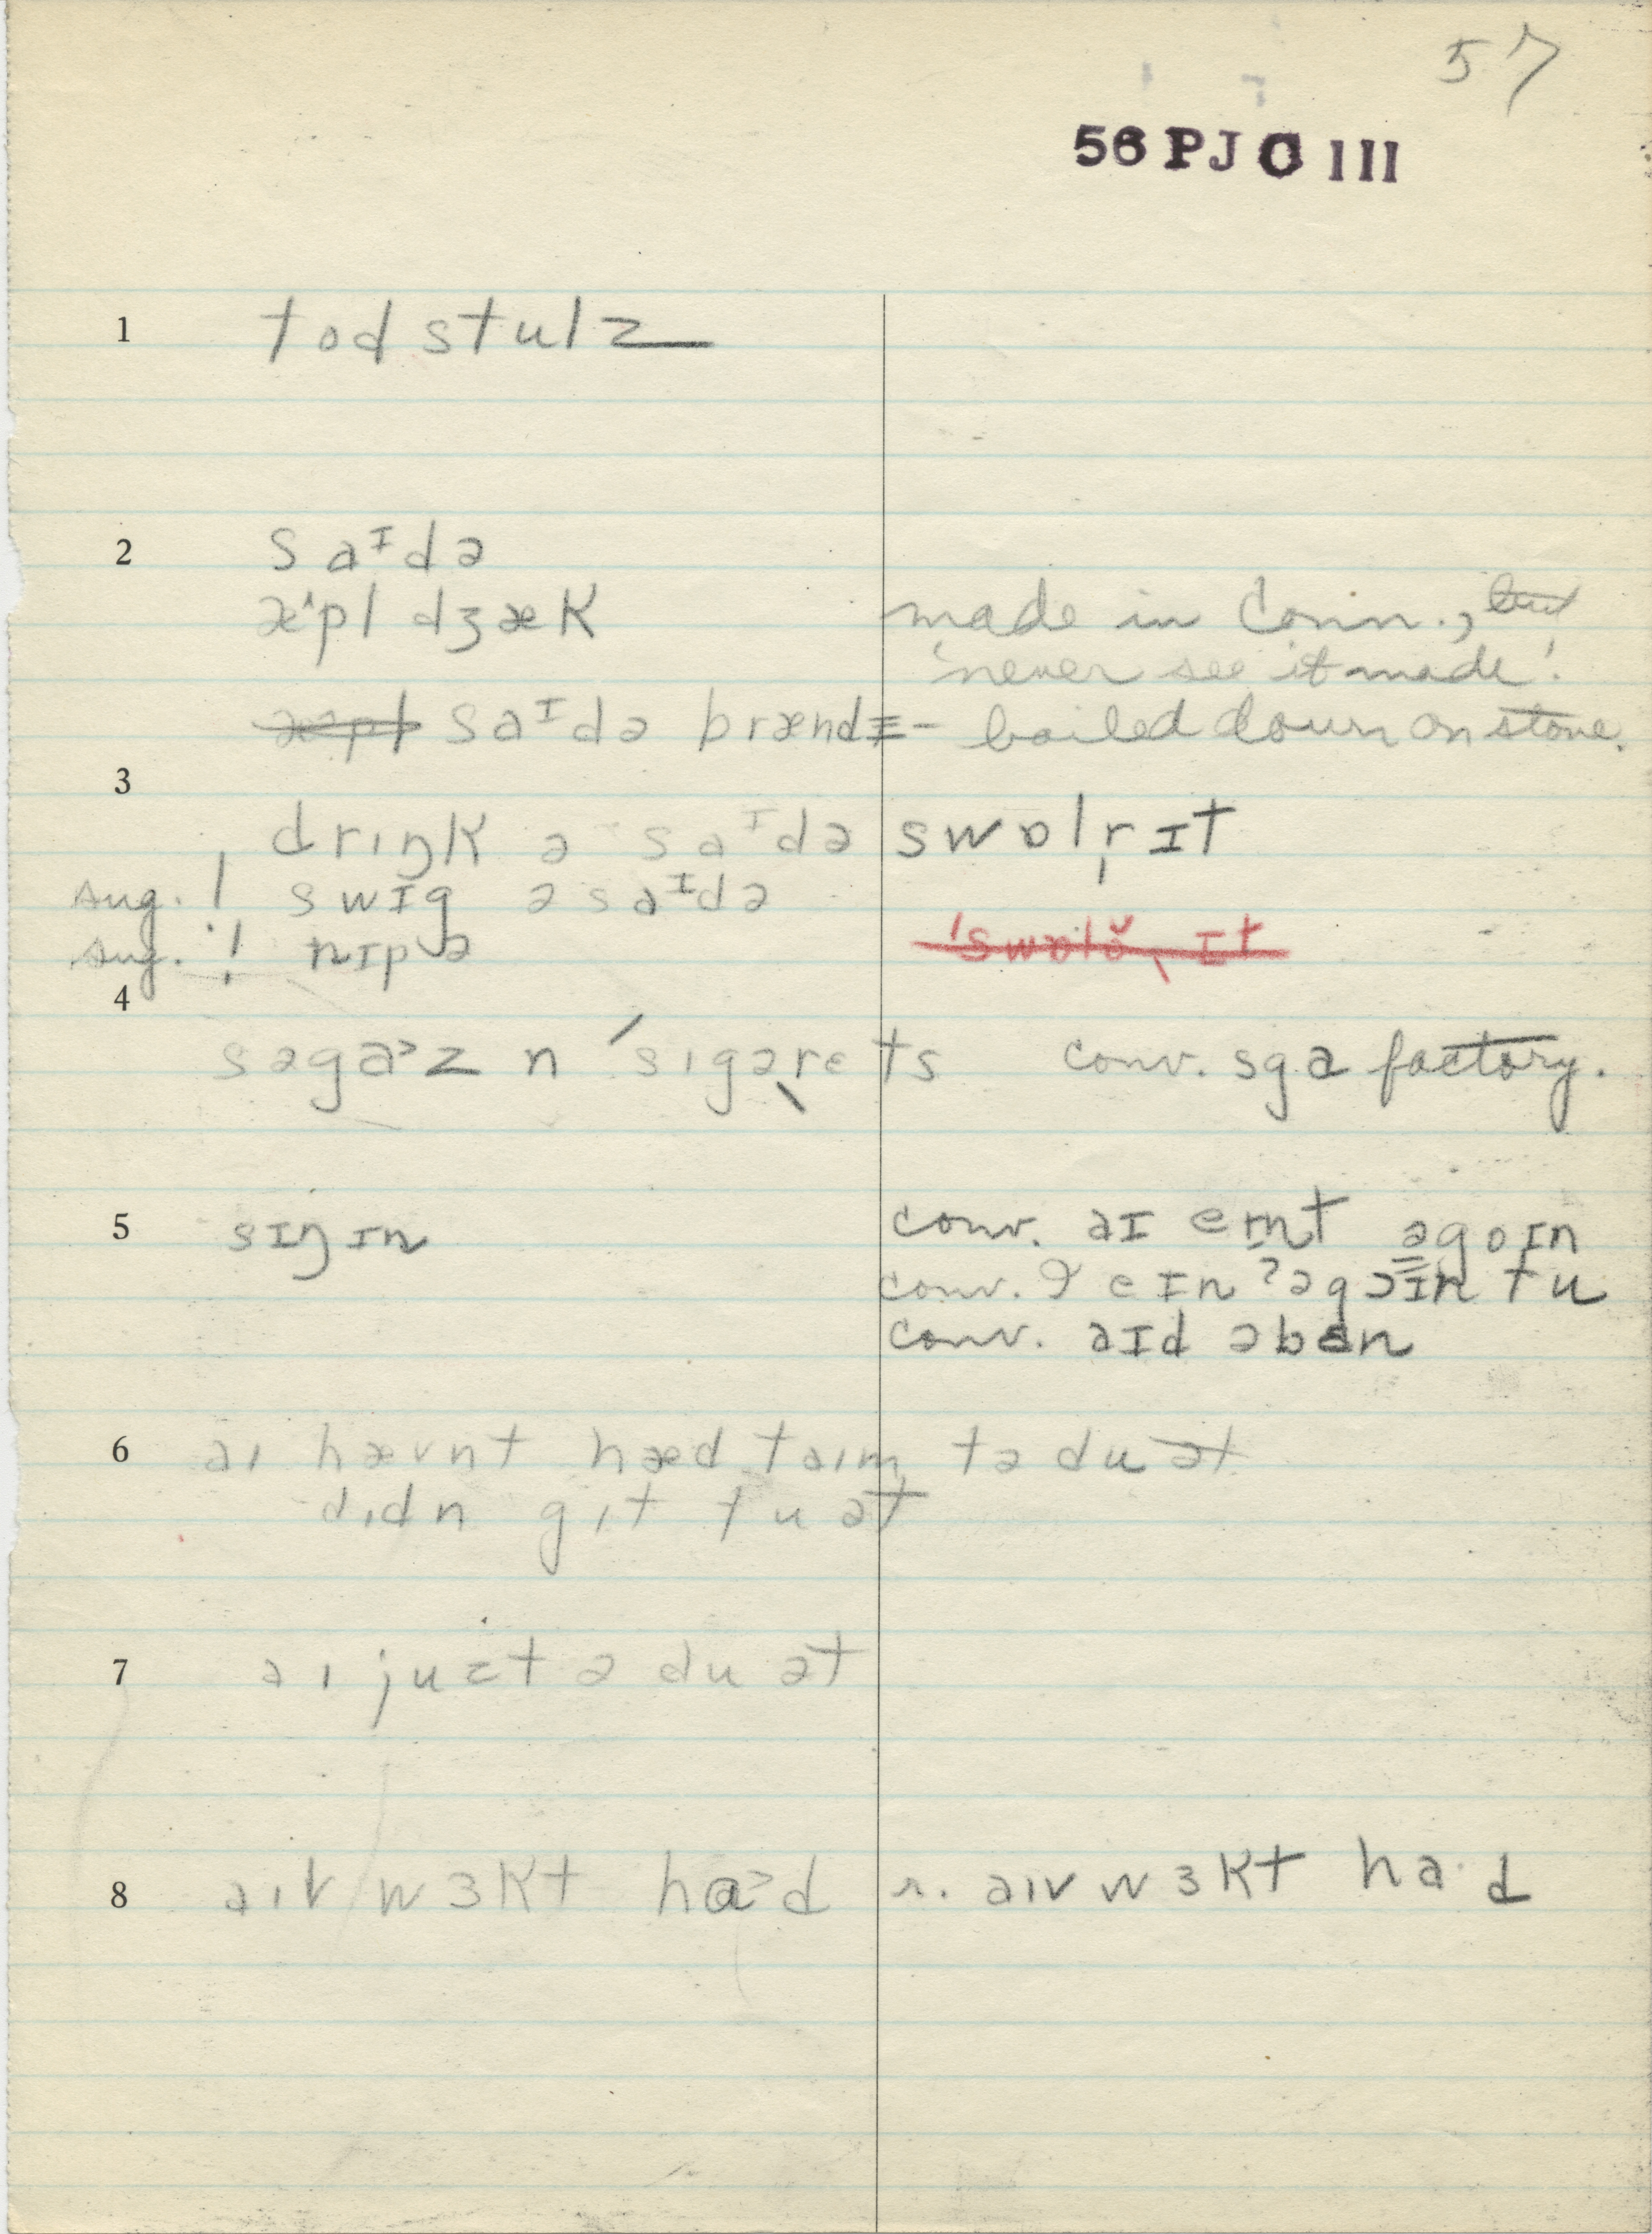 57
56 PJ C III
1 todstulz
2 saᴵdə
æ^pl dʒæk made in Conn., but
'never see it made!'
æpl saᴵdə brændɪ – boiled down on stone.
3
drɪŋk ə saᴵdə swɒlr̩ ɪt
sug. ! swɪg ə saᴵdə
sug. ! nɪp ə 'swɒlə ɪt
4
səga˃z n 'sɪgəˌrets conv. sga factory.
5 sɪŋɪn conv. aɪ eɪnt əgoɪn
conv. 9 eɪnʔəgɔɪn tu
conv. aɪd əbɛn
6 aɪ hævnt hæd taɪm tə du ət
dɪdn gɪt tu ət
7 aɪ juztə du ət
8 aɪv wɜkt ha˃d r. aɪv wɜkt ha·d